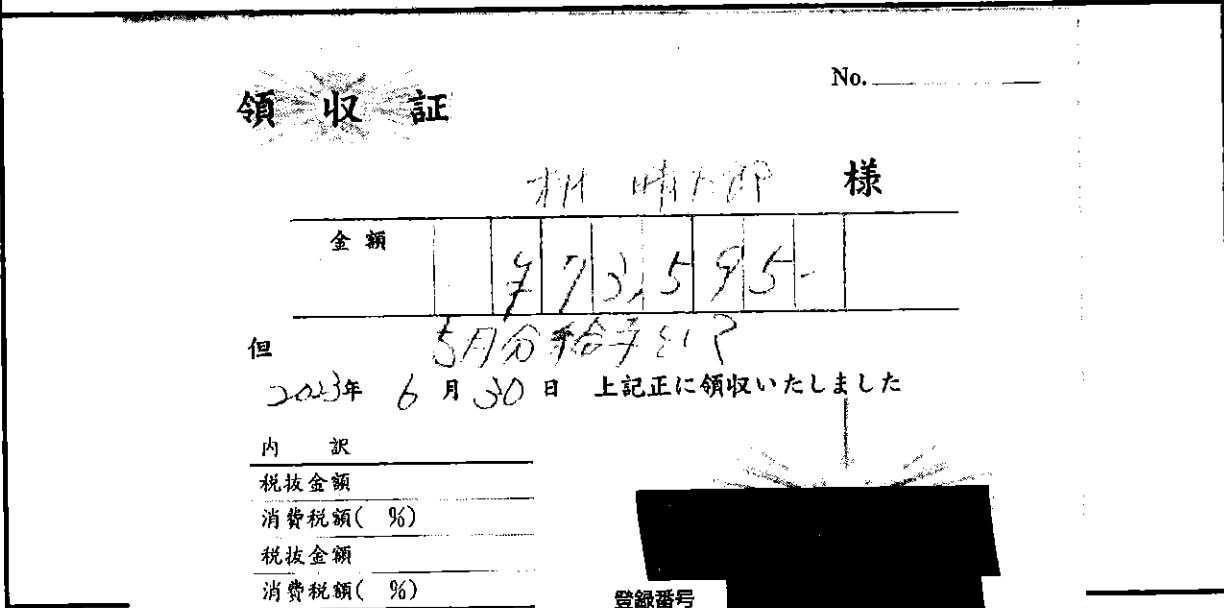 No.
領収証
晴太郎 様
金額 ¥773,595-
但 5月分給与として
2023年 6月30日 上記正に領収いたしました
内訳
税抜金額
消費税額( %)
税抜金額
消費税額( %)
登録番号